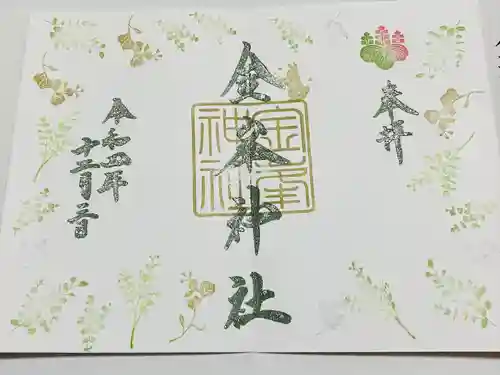 奉拝
金峯神社
金峯
神社
令和四年
十二月吉日